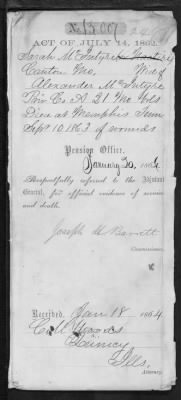 No. 13.007
ACT OF JULY 14, 1862.
Sarah McIntyre
Canton Mo, Wid of
Alexander McIntyre
Priv Co. A. 21 Mo Vols
Died at Memphis Tenn
Sept 10. 1863 of wounds
Pension Office,
January 20, 1864
Respectfully referred to the Adjutant
General, for official evidence of service
and death.
Joseph H Barrett
Commissioner.
Received, Jan 18, 1864
C M Woods
Quincy
Ills.
Attorney.